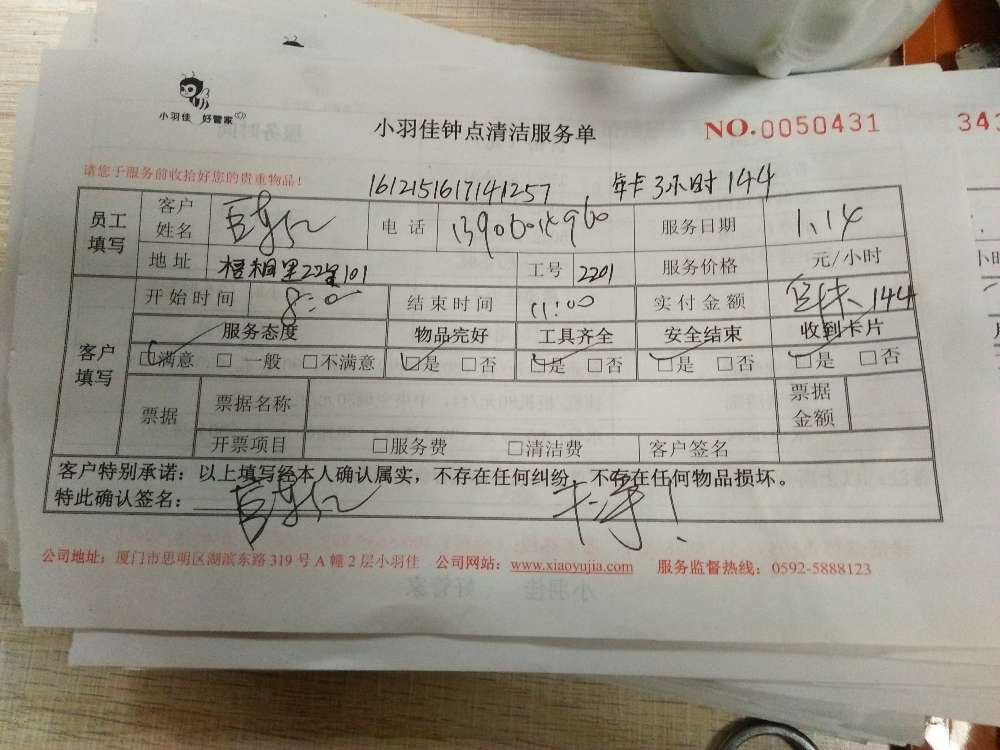 小羽佳 好管家
小羽佳钟点清洁服务单
NO.0050431
343
请您于服务前收拾好您的贵重物品！
1612151617141257 年卡3小时144
员工填写 客户姓名 电话 服务日期 1.14
地址 梧桐里22号101 工号 2201 服务价格 元/小时
客户填写 开始时间 8:00 结束时间 11:00 实付金额 年卡144
服务态度 物品完好 工具齐全 安全结束 收到卡片
☑满意 □ 一般 □不满意 ☑是 □否 ☑是 □否 ☑是 □否 ☑是 □否
票据 票据名称 票据金额
开票项目 □服务费 □清洁费 客户签名
客户特别承诺：以上填写经本人确认属实，不存在任何纠纷，不存在任何物品损坏。
特此确认签名：
公司地址：厦门市思明区湖滨东路319号A幢2层小羽佳 公司网站：www.xiaoyujia.com 服务监督热线：0592-5888123